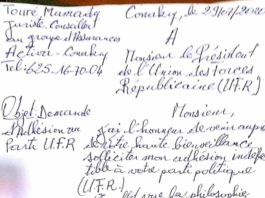 Touré Mamady
Conakry, le 29/07/2020
Juriste-Conseiller
au groupe d'Assurances
Activa-Conakry
Tel: 625-16-70-04
A
Monsieur le Président
de l'Union des Forces
Républicaine (U.F.R)
Objet: Demande
d'Adhésion au
Parti U.F.R
Monsieur,
j'ai l'honneur de venir auprès
de votre haute bienveillance
solliciter mon adhésion
à votre parti politique
(U.F.R.)
la philosophie